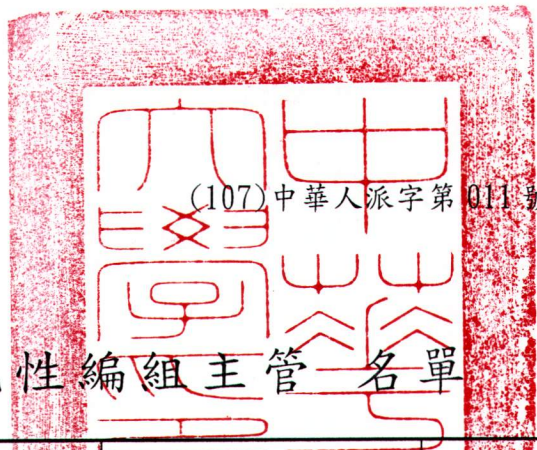 (107)中華人派字第 011 號
性編組主管 名單